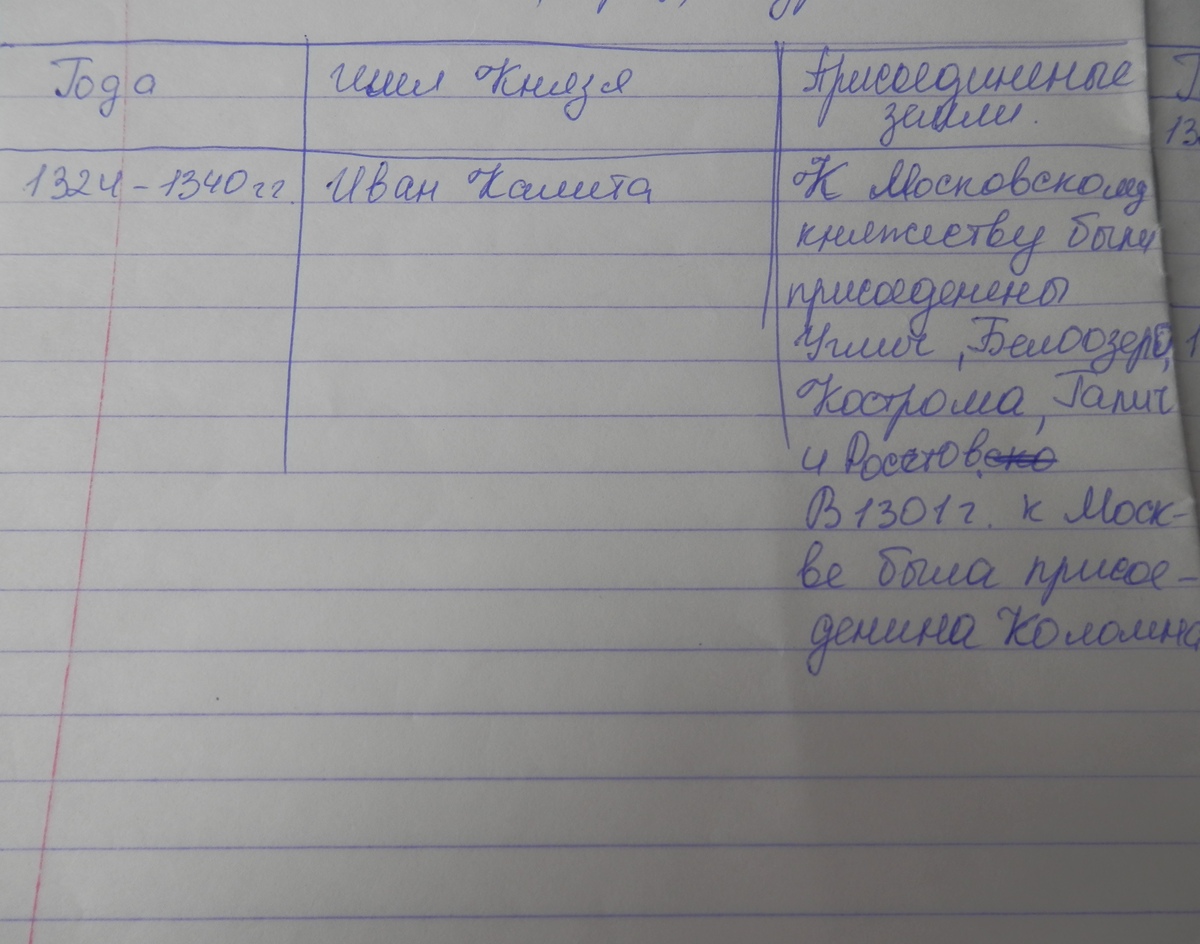 Года Имя Князя Присоединеные
земли.
1324-1340гг. Иван Калита К Московскому
княжеству были
присоеденены
Углич, Белоозеро,
Кострома, Галич
и Росстов
В 1301г. к Моск-
ве была присое-
денина Коломна